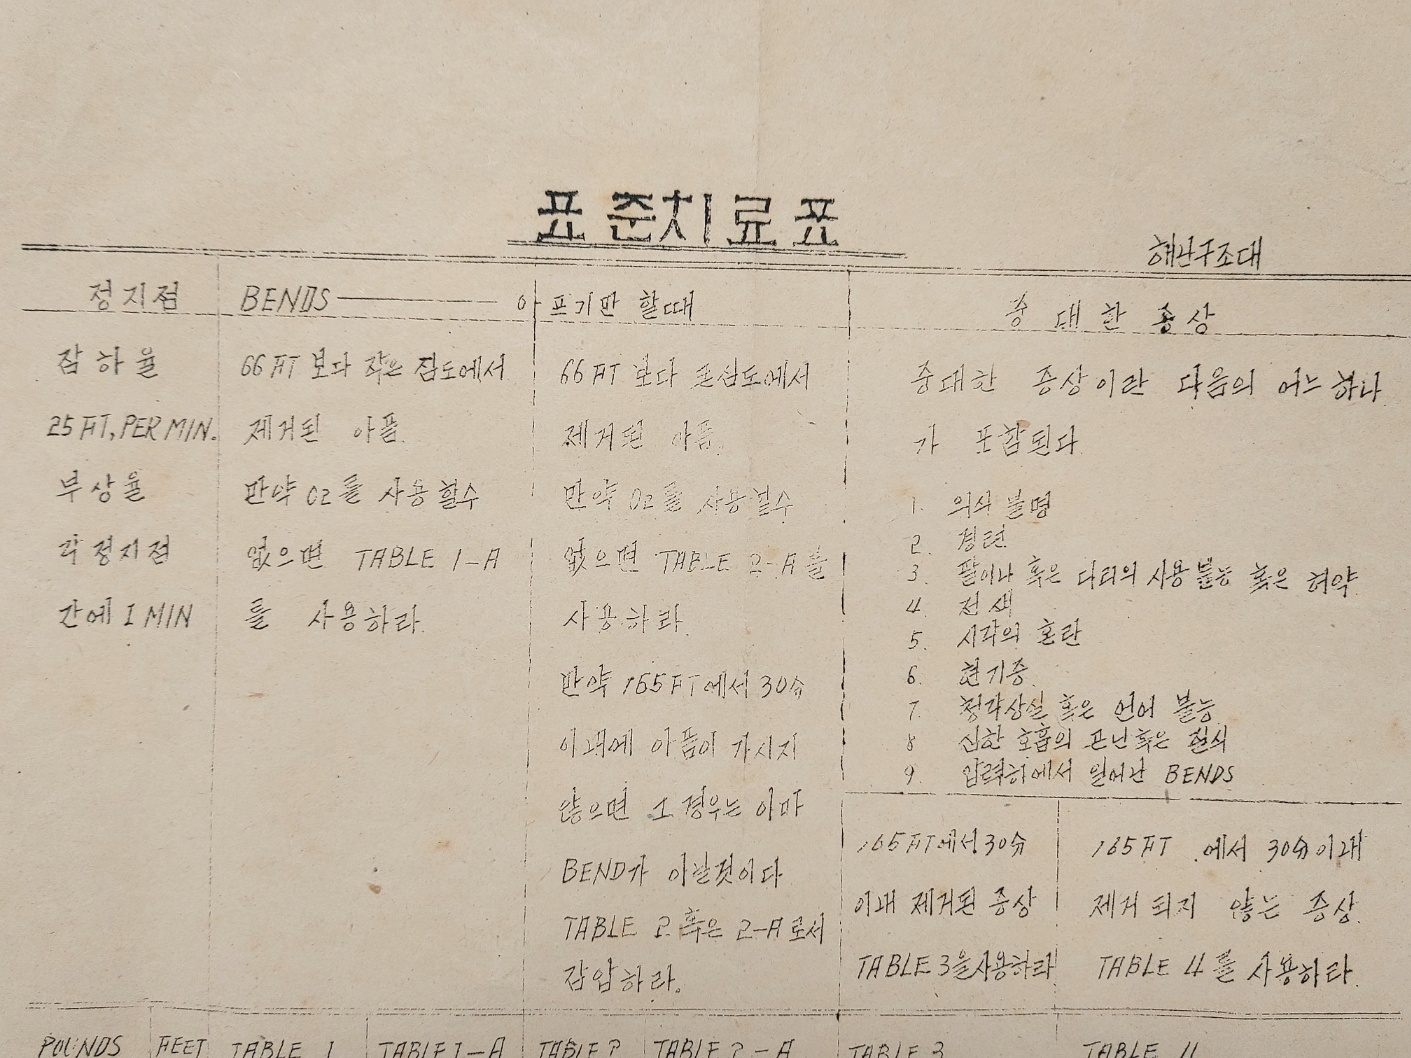 표준치료표
해난구조대
정지점 BENDS 아프기만 할때 중대한 증상
잠하율
25 FT, PER MIN.
부상율
각 정지점
간에 1 MIN
66 FT 보다 작은 심도에서
제거된 아픔.
만약 O2를 사용할수
없으면 TABLE 1-A
를 사용하라.
66 FT 보다 큰심도에서
제거된 아픔.
만약 O2를 사용할수
없으면 TABLE 2-A를
사용하라.
만약 165 FT에서 30分
이내에 아픔이 가시지
않으면 그 경우는 아마
BEND가 아닐것이다
TABLE 2 혹은 2-A로서
감압하라.
중대한 증상이란 다음의 어느 하나
가 포함된다.
1. 의식 불명
2. 경련
3. 팔이나 혹은 다리의 사용불능 혹은 허약
4. 전색
5. 시각의 혼란
6. 현기증
7. 청각상실 혹은 언어 불능
8. 심한 호흡의 곤난 혹은 질식
9. 압력하에서 일어난 BENDS
165 FT에서 30分
이내 제거된 증상
TABLE 3을사용하라
165 FT 에서 30分이내
제거 되지 않는 증상.
TABLE 4를 사용하라.
POUNDS FEET TABLE 1 TABLE 1-A TABLE 2 TABLE 2-A TABLE 3 TABLE 4